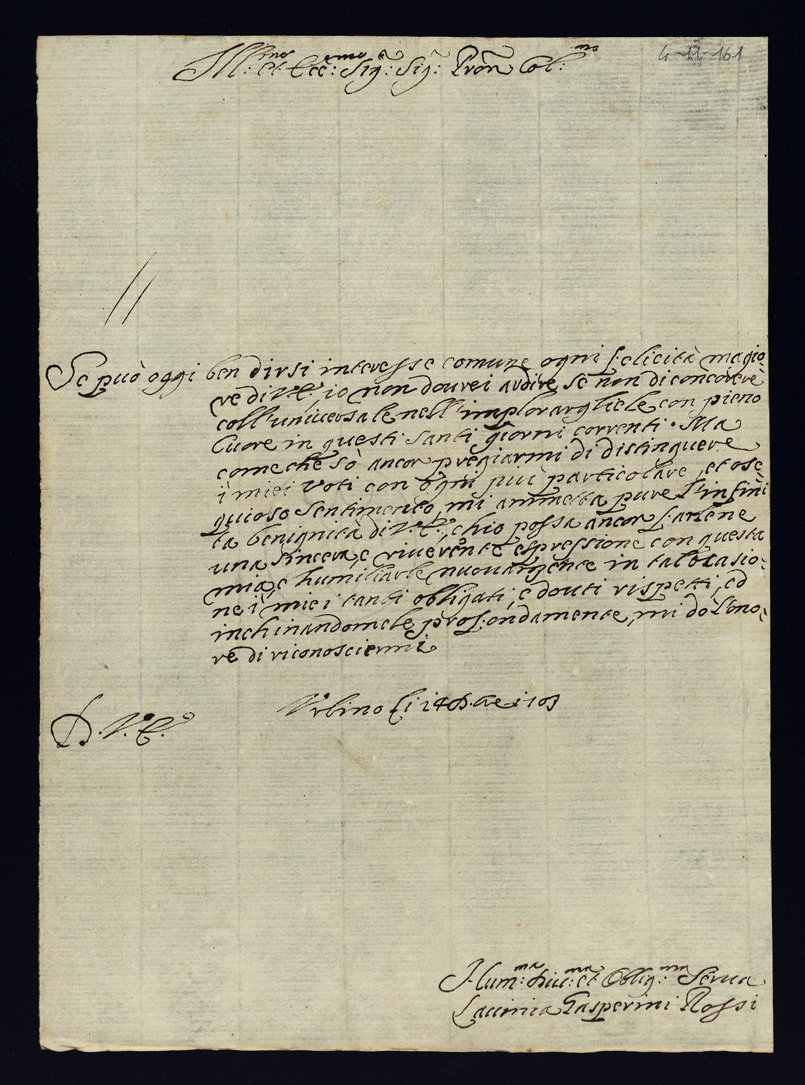 Ill:mo et Ecc:mo Sig:r Sig:r Pron Col:mo
4-11-161
Se può oggi ben dirsi interesse comune ogni felicità magio
re di V. E., io non dovrei ardire se non di concorrere
coll'universale nell'implorargliele con pieno
Cuore in questi santi giorni correnti. Ma
come che sò ancor pregiarmi di distinguere
i miei Voti con ogni più particolare, et osse
quioso sentimento, mi ammetta pure l'infini
ta benignità di V. E., ch'io possa ancor farlene
una sincera, e riverente espressione con questa
mia, e humiliarle nuovamente in tal ocasio:
ne i miei tanti obligati, e douti rispetti, ed
inchinandomele profondamente, mi dò l'ono:
re di riconoscermi
D. V. E.
Urbino li 14 Xbre 1703
Hum:ma Div:ma et Oblig:ma Serva
Lavinia Gasperini Rossi